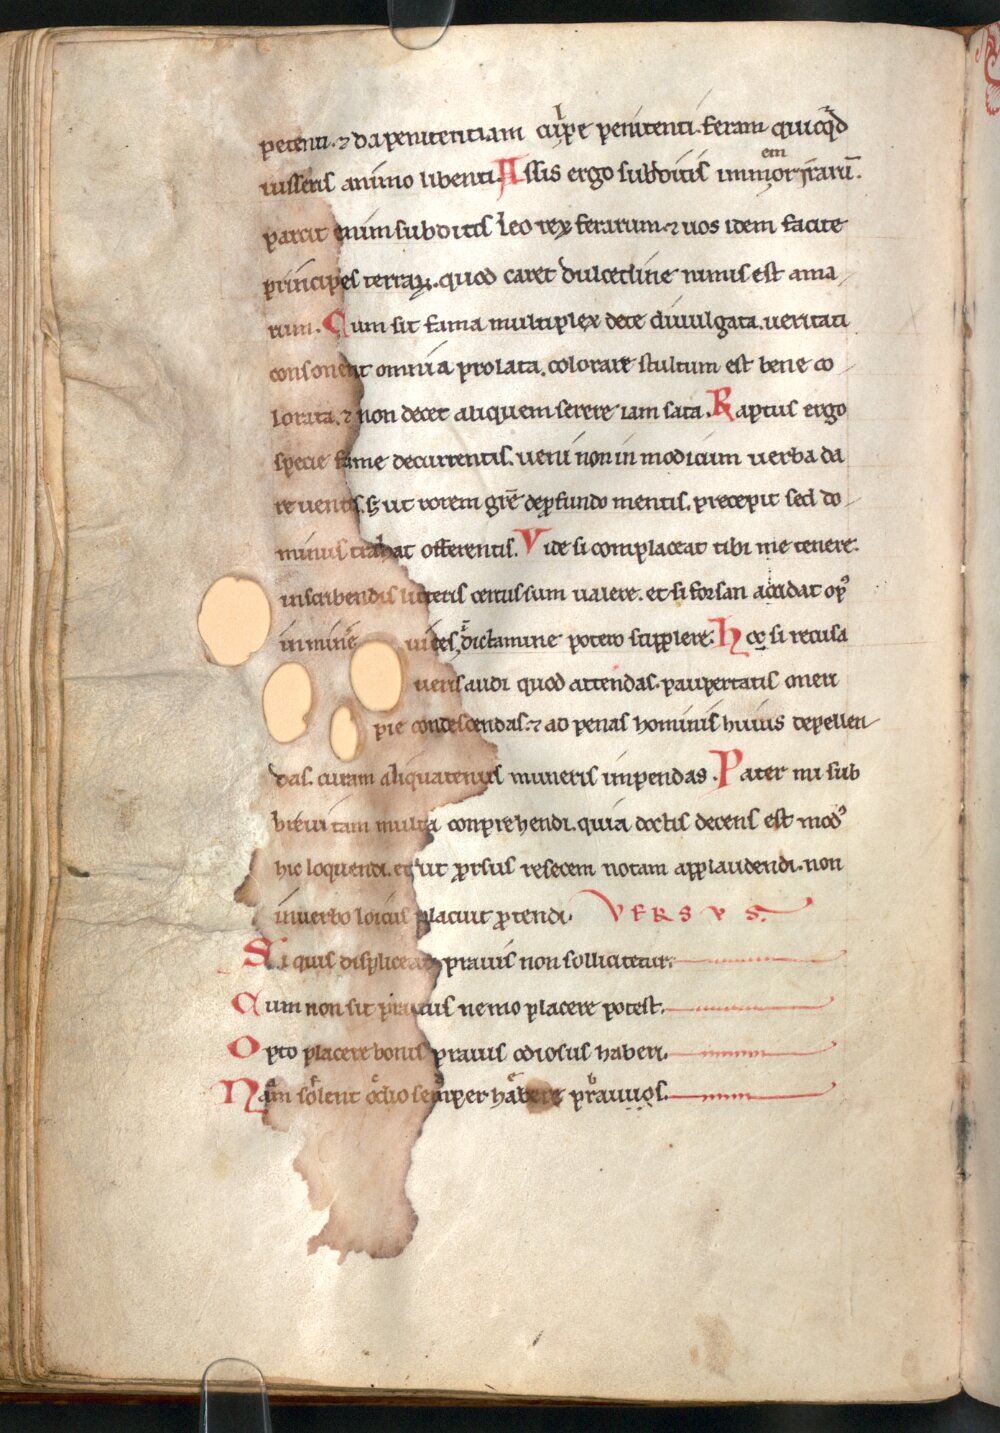 petenti. ⁊ da penitentiam culpe penitenti. feram quicq̄d
iusseris animo libenti. Assis ergo subditis immemor irarū.
parcit enim subditis leo rex ferarum. ⁊ uos idem facite
principes terraꝝ. quod caret dulcedine nimis est ama
rum. Cum sit fama multiplex de te diuulgata. ueritati
consonent omnia prolata. colorare stultum est bene co
lorata. ⁊ non decet aliquem serere iam sata. Raptus ergo
specie fame decurrentis. ueni non in modicum uerba da
re uentis. sꝫ ut rorem grē de ꝓfundo mentis. precepit sed do
minus trahat offerentis. Vide si complaceat tibi me tenere.
in scribendis litteris certus sum ualere. et si forsan accidat opꝰ
in minē dictamine potero supplere. Hoc si recusa
ueris audi quod attendas. paupertatis oneri
pie condescendas. ⁊ ad penas hominis huius depellen
das. curam aliquatenus muneris impendas. Pater mi sub
breui tam multa conprehendi. quia doctis decens est modꝰ
hic loquendi. et ut ꝓrsus resecem notam applaudendi. non
in uerbo placuit ꝓtendi. VERSVS.
Si quis displiceat prauis non sollicitetur.
Cum non sit prauus nemo placere potest.
Opto placere bonis prauis odiosus haberi.
Nam solent odio semper habere prauuos.